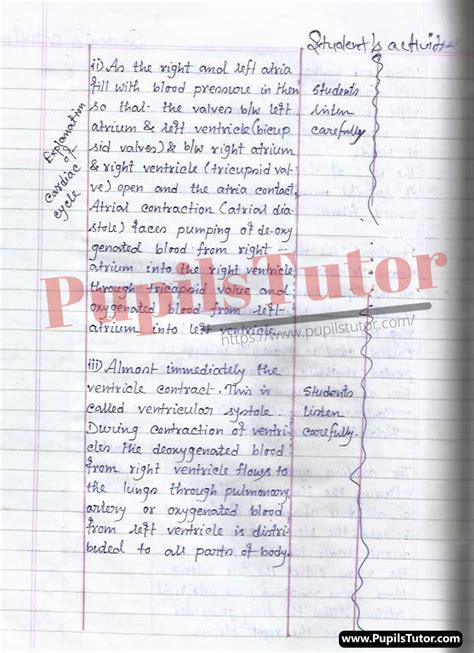 Student's activities
Explanation
of
cardiac
cycle
ii) As the right and left atria
fill with blood pressure in then
so that the valves b/w left
atrium & left ventricle (bicup
sid valves) & b/w right atrium
& right ventricle (tricupsid val-
ve) open and the atria contact.
Atrial contraction (atrial dia-
stole) faces pumping of de-oxy
genated blood from right
atrium into the right ventricle
through tricapsid value and
oxygenated blood from left-
atrium into left ventricle.
Students
listen
carefully
iii) Almost immediately the
ventricle contract. This is
called ventricular systole.
During contraction of ventri
cles the deoxygenated blood
from right ventricle flows to
the lungs through pulmonary
artery or oxygenated blood
from left ventricle is distri
buted to all parts of body.
Students
listen
carefully.
PupilsTutor
https://www.pupilstutor.com/
www.PupilsTutor.com